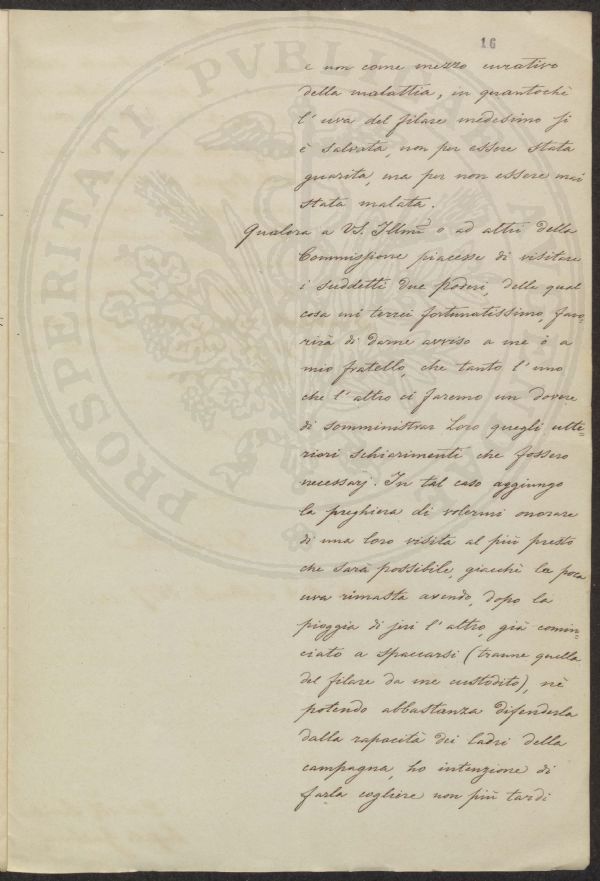 16
e non come mezzo curativo
della malattia, in quantochè
l'uva del filare medesimo si
è salvata, non per essere stata
guarita, ma per non essere mai
stata malata.
Qualora a VS. Illma o ad altri della
Commissione piacesse di visitare
i suddetti due poderi, della qual
cosa mi terrei fortunatissimo, favo=
rirà di darne avviso a me ò a
mio fratello, che tanto l'uno
che l'altro ci faremo un dovere
di somministrar Loro quegli ulte=
riori schiarimenti che fossero
necessarj. In tal caso aggiungo
la preghiera di volermi onorare
di una loro visita al più presto
che sarà possibile, giacchè la poca
uva rimasta avendo, dopo la
pioggia di jeri l'altro, già comin=
ciato a spaccarsi (tranne quella
del filare da me custodito), nè
potendo abbastanza difenderla
dalla rapacità dei ladri della
campagna, ho intenzione di
farla cogliere non più tardi
PROSPERITATI PVBLICAE